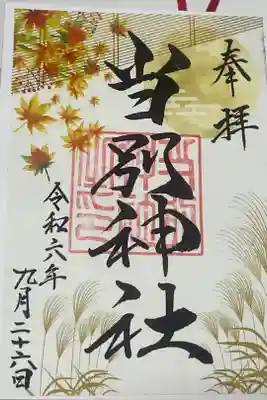 奉拝
当別神社
令和六年
九月二十六日